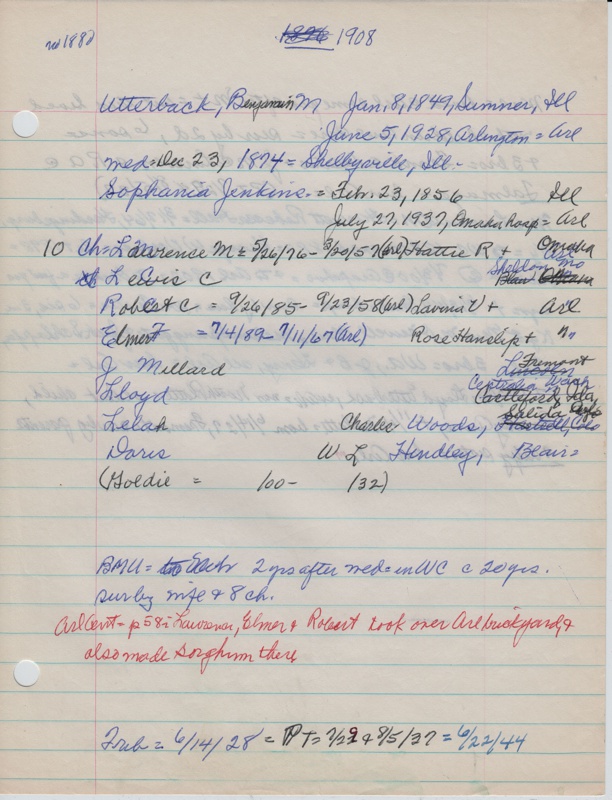 1908
Utterback, Benjamin M Jan. 8, 1849, Sumner, Ill
June 5, 1928, Arlington = Arl
med = Dec 23, 1874 = Shelbyville, Ill. -
Sophania Jenkins. = Feb. 23, 1856 Ill
July 27, 1937, Omaha Hosp = Arl
10 Ch = Lawrence M = 5/26/76 - 3/20/57 (Arl) Hattie R + Omaha Arl
Lewis C Sheldon Mo
Robert C = 9/26/85 - 9/23/58 (Arl) Lavina V + Arl
Elmer F = 7/4/89 - 7/11/67 (Arl) Rose Hanslip + " "
J Millard Fremont
Lloyd Centralia Wash
Castleford, Ida,
Lelah Charlie Woods, Salida Colo
Doris W L Hindley, Blair =
(Goldie = /00 - /32)
BMU = to 2 yrs after med = in WC c 20 yrs.
sur by wife & 8 ch.
Arl Cent = p 58 = Lawrence, Elmer & Robert took over Arl brickyard, &
also made sorghum there
Trib = 6/14/28 = PT = 7/29 & 8/5/37 = 6/22/44